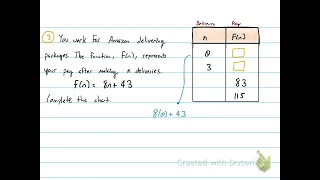 Deliveries Pay
③ You work for Amazon delivering
packages. The function, F(n), represents
your pay after making n deliveries.
f(n) = 8n + 43
Complete the chart.
n F(n)
0
3
83
115
8(0) + 43
Created with Doceri